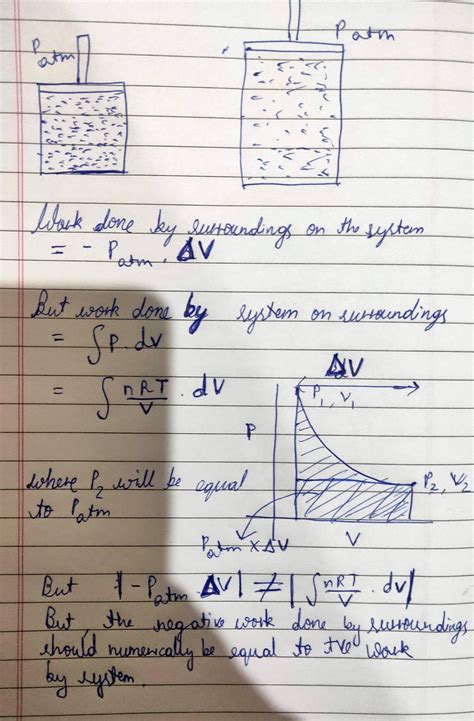 Patm
Patm
Work done by surroundings on the system
= - Patm . ΔV
But work done by system on surroundings
= ∫ P. dv
= ∫ nRT/V . dV
ΔV
P1, V1
P
P2, V2
V
Patm × ΔV
where P2 will be equal
to Patm
But |-Patm . ΔV| ≠ |∫ nRT/V . dV|
But, the negative work done by surroundings
should numerically be equal to +ve work
by system.